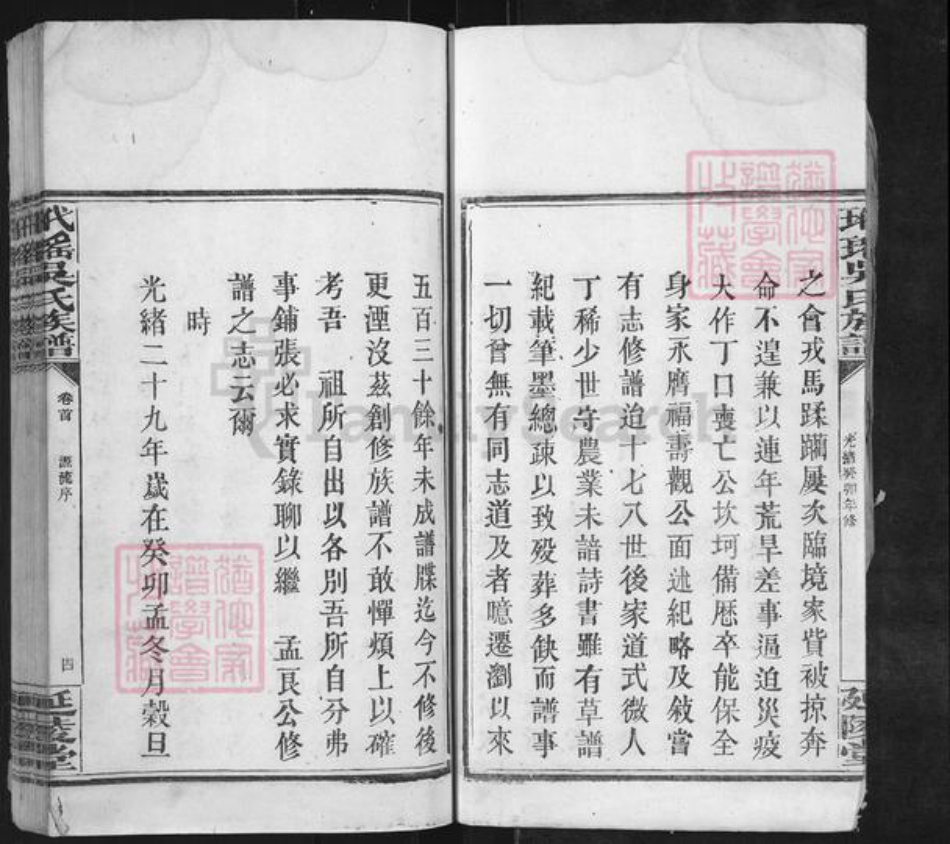 之會戎馬蹂躪屢次臨境家貲被掠奔
命不遑兼以連年荒旱差事逼迫災疫
大作丁口喪亡公坎坷備歷卒能保全
身家永膺福壽觀公面述紀略及敍嘗
有志修譜迨十七八世後家道式微人
丁稀少世守農業未諳詩書雖有草譜
紀載筆墨總疎以致殁葬多缺而譜事
一切曾無有同志道及者噫遷瀏以來
光緒癸卯年修
五百三十餘年未成譜牒迄今不修後
更湮沒茲創修族譜不敢憚煩上以確
考吾 祖所自出以各別吾所自分弗
事鋪張必求實錄聊以繼 孟艮公修
譜之志云爾
時
光緒二十九年歲在癸卯孟冬月穀旦
吳氏族譜
卷首
源流序
四
延陵堂
FamilySearch